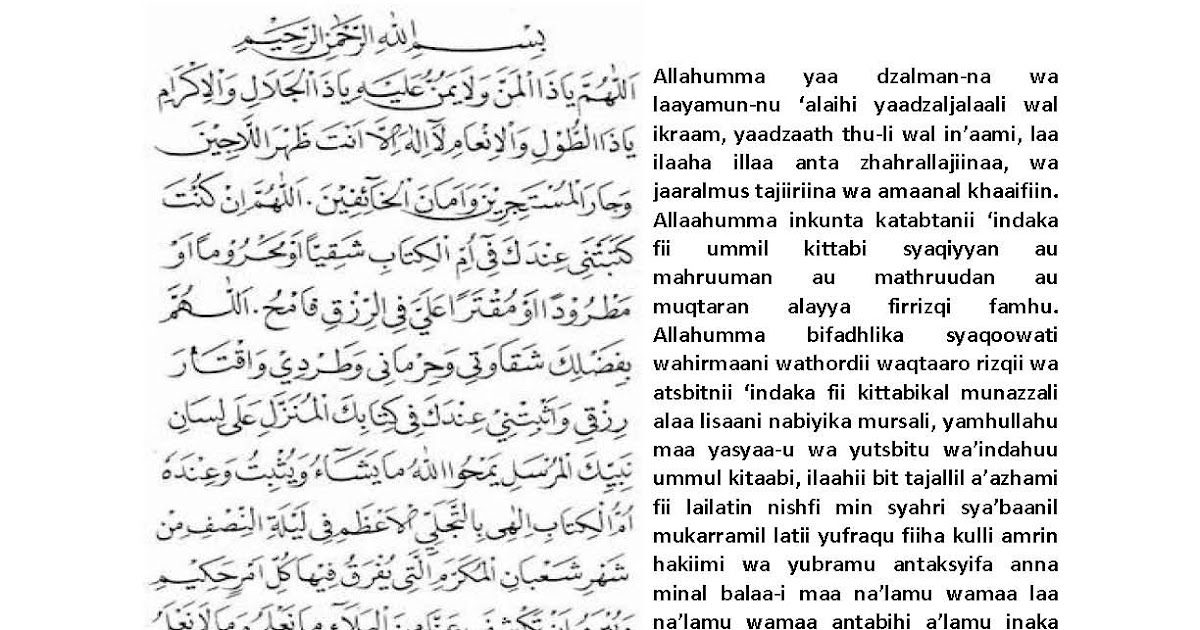 بِسْــــمِ اللهِ الرَّحْمٰنِ الرَّحِيْمِ
اَللّٰهُمَّ يَاذَا الْمَنِّ وَلَا يَمُنُّ عَلَيْهِ يَاذَا الْجَلَالِ وَالْاِكْرَامِ
يَاذَا الطَّوْلِ وَالْاِنْعَامِ لَآ اِلٰهَ اِلَّا اَنْتَ ظَهْرَ اللَّاجِيْنَ
وَجَارَ الْمُسْتَجِرِيْنَ وَاَمَانَ الْخَآئِفِيْنَ. اَللّٰهُمَّ اِنْ كُنْتَ
كَتَبْتَنِى عِنْدَكَ فِىٓ اُمِّ الْكِتَابِ شَقِيًّا اَوْمَحْرُوْمًا اَوْ
مَطْرُوْدًا اَوْ مُقْتَرًا عَلَيَّ فِى الرِّزْقِ فَامْحُ. اَللّٰهُمَّ
بِفَضْلِكَ شَقَاوَتِى وَحِرْمَانِى وَطَرْدِيْ وَاقْتَارَ
رِزْقِى وَاَثْبِتْنِيْ عِنْدَكَ فِى كِتَابِكَ الْمُنَزَّلِ عَلَى لِسَانِ
نَبِيِّكَ الْمُرْسَلِ يَمْحُوا اللهُ مَايَشَآءُ وَيُثْبِتُ وَعِنْدَهُ
اُمُّ الْكِتَابِ اِلٰهِى بِالتَّجَلِّى الْاَعْظَمِ فِى لَيْلَةِ النِّصْفِ مِنْ
شَهْرِ شَعْبَانِ الْمُكَرَّمِ الَّتِى يُفْرَقُ فِيْهَا كُلُّ اَمْرٍحَكِيْمٍ
Allahumma yaa dzalman-na wa
laayamun-nu ‘alaihi yaadzaljalaali wal
ikraam, yaadzaath thu-li wal in’aami, laa
ilaaha illaa anta zhahrallajiinaa, wa
jaaralmus tajiiriina wa amaanal khaaifiin.
Allaahumma inkunta katabtanii ‘indaka
fii ummil kittabi syaqiyyan au
mahruuman au mathruudan au
muqtaran alayya firrizqi famhu.
Allahumma bifadhlika syaqoowati
wahirmaani wathordii waqtaaro rizqii wa
atsbitnii ‘indaka fii kittabikal munazzali
alaa lisaani nabiyika mursali, yamhullahu
maa yasyaa-u wa yutsbitu wa’indahuu
ummul kitaabi, ilaahii bit tajallil a’azhami
fii lailatin nishfi min syahri sya’baanil
mukarramil latii yufraqu fiiha kulli amrin
hakiimi wa yubramu antaksyifa anna
minal balaa-i maa na’lamu wamaa laa
na’lamu wamaa antabihi a’lamu inaka